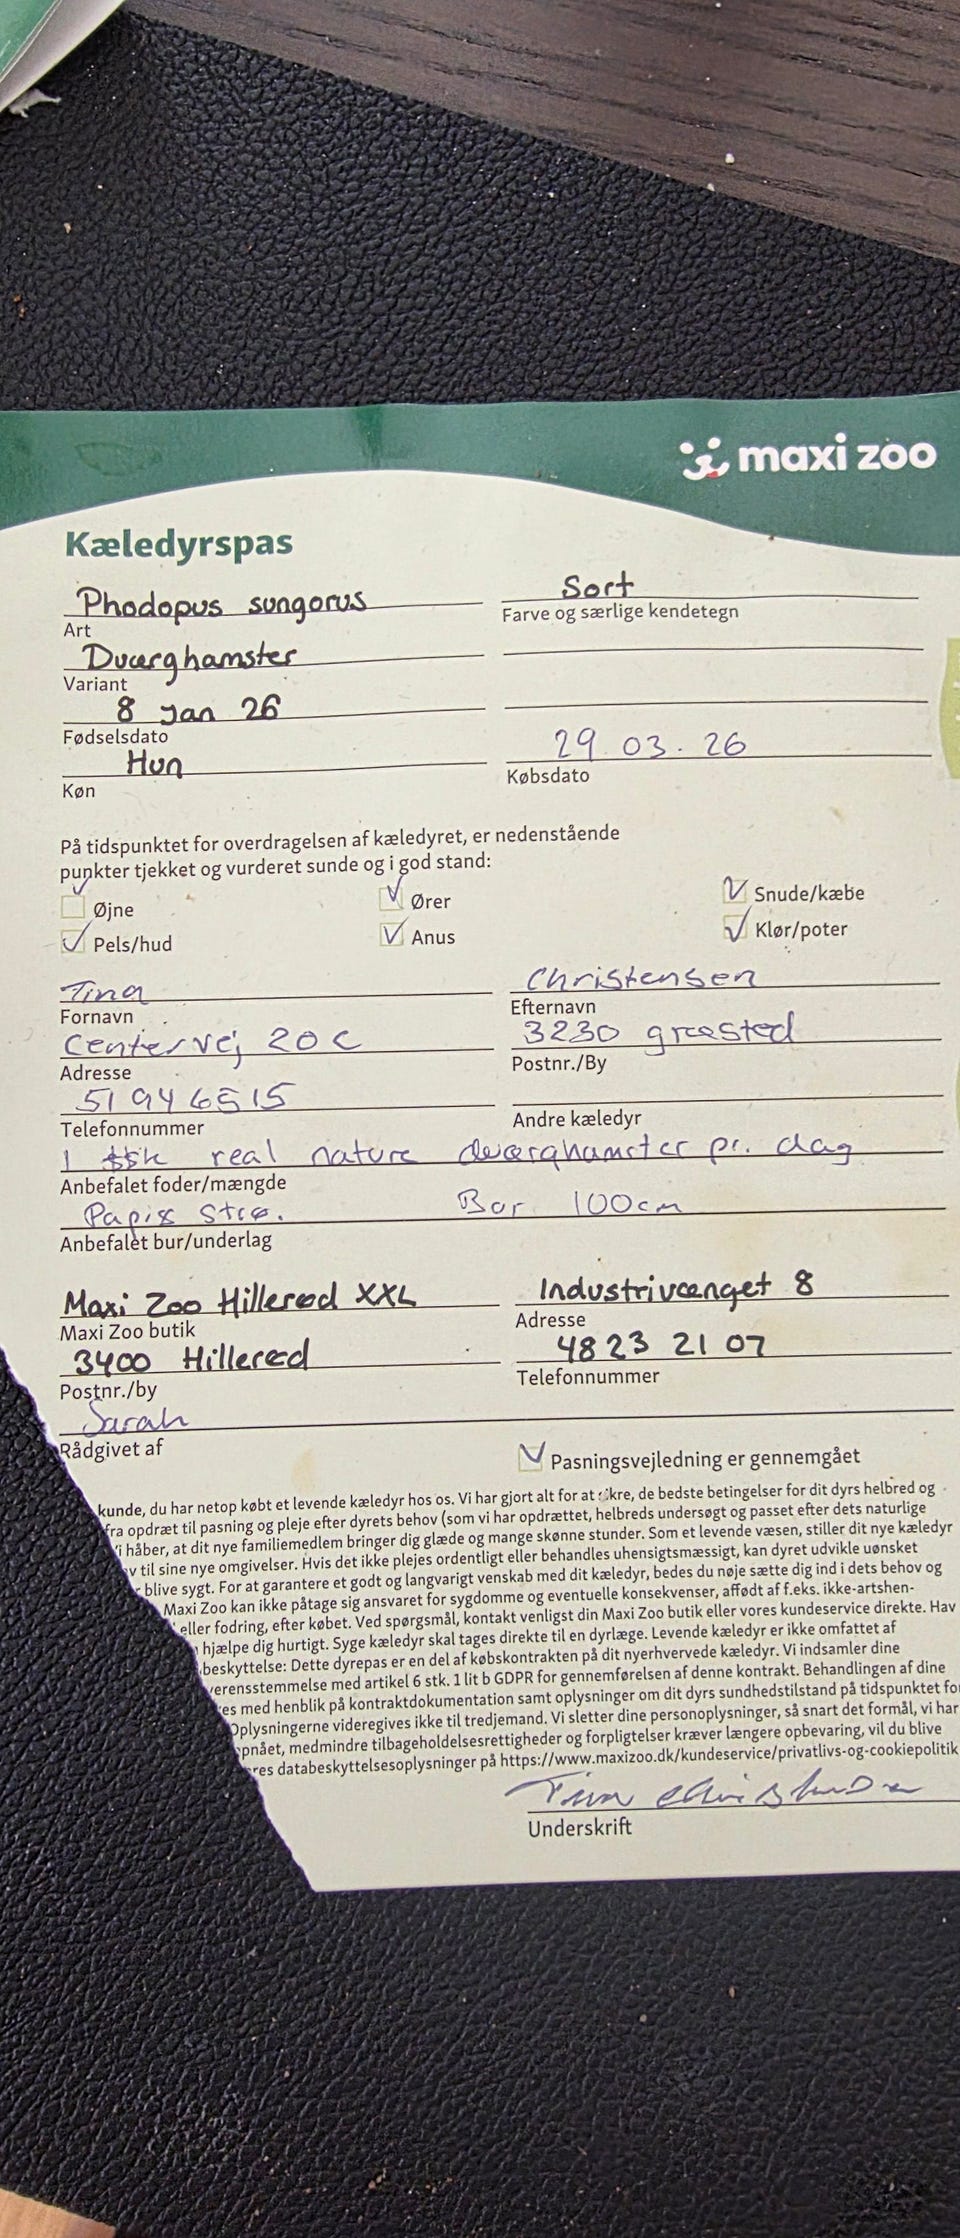 maxi zoo
Kæledyrspas
Phodopus sungorus
Sort
Art
Farve og særlige kendetegn
Dværghamster
Variant
8 Jan 26
Fødselsdato
29 03. 26
Hun
Købsdato
Køn
På tidspunktet for overdragelsen af kæledyret, er nedenstående
punkter tjekket og vurderet sunde og i god stand:
Øjne Ører Snude/kæbe
Pels/hud Anus Klør/poter
Tina Christensen
Fornavn Efternavn
Centervej 20 C 3230 græsted
Adresse Postnr./By
51 94 65 15
Telefonnummer Andre kæledyr
1 real nature dværghamster pr. dag
Anbefalet foder/mængde
Strø. 100cm
Anbefalet bur/underlag
Maxi Zoo Hillerød XXL Industrivænget 8
Maxi Zoo butik Adresse
3400 Hillerød 48 23 21 07
Postnr./by Telefonnummer
Sarah
Rådgivet af
Pasningsvejledning er gennemgået
kunde, du har netop købt et levende kæledyr hos os. Vi har gjort alt for at sikre, de bedste betingelser for dit dyrs helbred og
fra opdræt til pasning og pleje efter dyrets behov (som vi har opdrættet, helbreds undersøgt og passet efter dets naturlige
i håber, at dit nye familiemedlem bringer dig glæde og mange skønne stunder. Som et levende væsen, stiller dit nye kæledyr
v til sine nye omgivelser. Hvis det ikke plejes ordentligt eller behandles uhensigtsmæssigt, kan dyret udvikle uønsket
blive sygt. For at garantere et godt og langvarigt venskab med dit kæledyr, bedes du nøje sætte dig ind i dets behov og
Maxi Zoo kan ikke påtage sig ansvaret for sygdomme og eventuelle konsekvenser, affødt af f.eks. ikke-artshen-
eller fodring, efter købet. Ved spørgsmål, kontakt venligst din Maxi Zoo butik eller vores kundeservice direkte. Hav
hjælpe dig hurtigt. Syge kæledyr skal tages direkte til en dyrlæge. Levende kæledyr er ikke omfattet af
beskyttelse: Dette dyrepas er en del af købskontrakten på dit nyerhvervede kæledyr. Vi indsamler dine
verensstemmelse med artikel 6 stk. 1 lit b GDPR for gennemførelsen af denne kontrakt. Behandlingen af dine
es med henblik på kontraktdokumentation samt oplysninger om dit dyrs sundhedstilstand på tidspunktet for
Oplysningerne videregives ikke til tredjemand. Vi sletter dine personoplysninger, så snart det formål, vi har
pnået, medmindre tilbageholdelsesrettigheder og forpligtelser kræver længere opbevaring, vil du blive
res databeskyttelsesoplysninger på https://www.maxizoo.dk/kundeservice/privatlivs-og-cookiepolitik
Tina Christensen
Underskrift